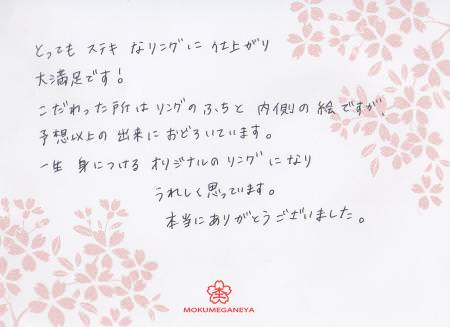 とっても ステキ なリングに 仕上がり
大満足です！
こだわった所は リングのふちと 内側の絵ですが、
予想以上の 出来に おどろいています。
一生 身につける オリジナルのリングになり
うれしく思っています。
本当にありがとうございました。
MOKUMEGANEYA